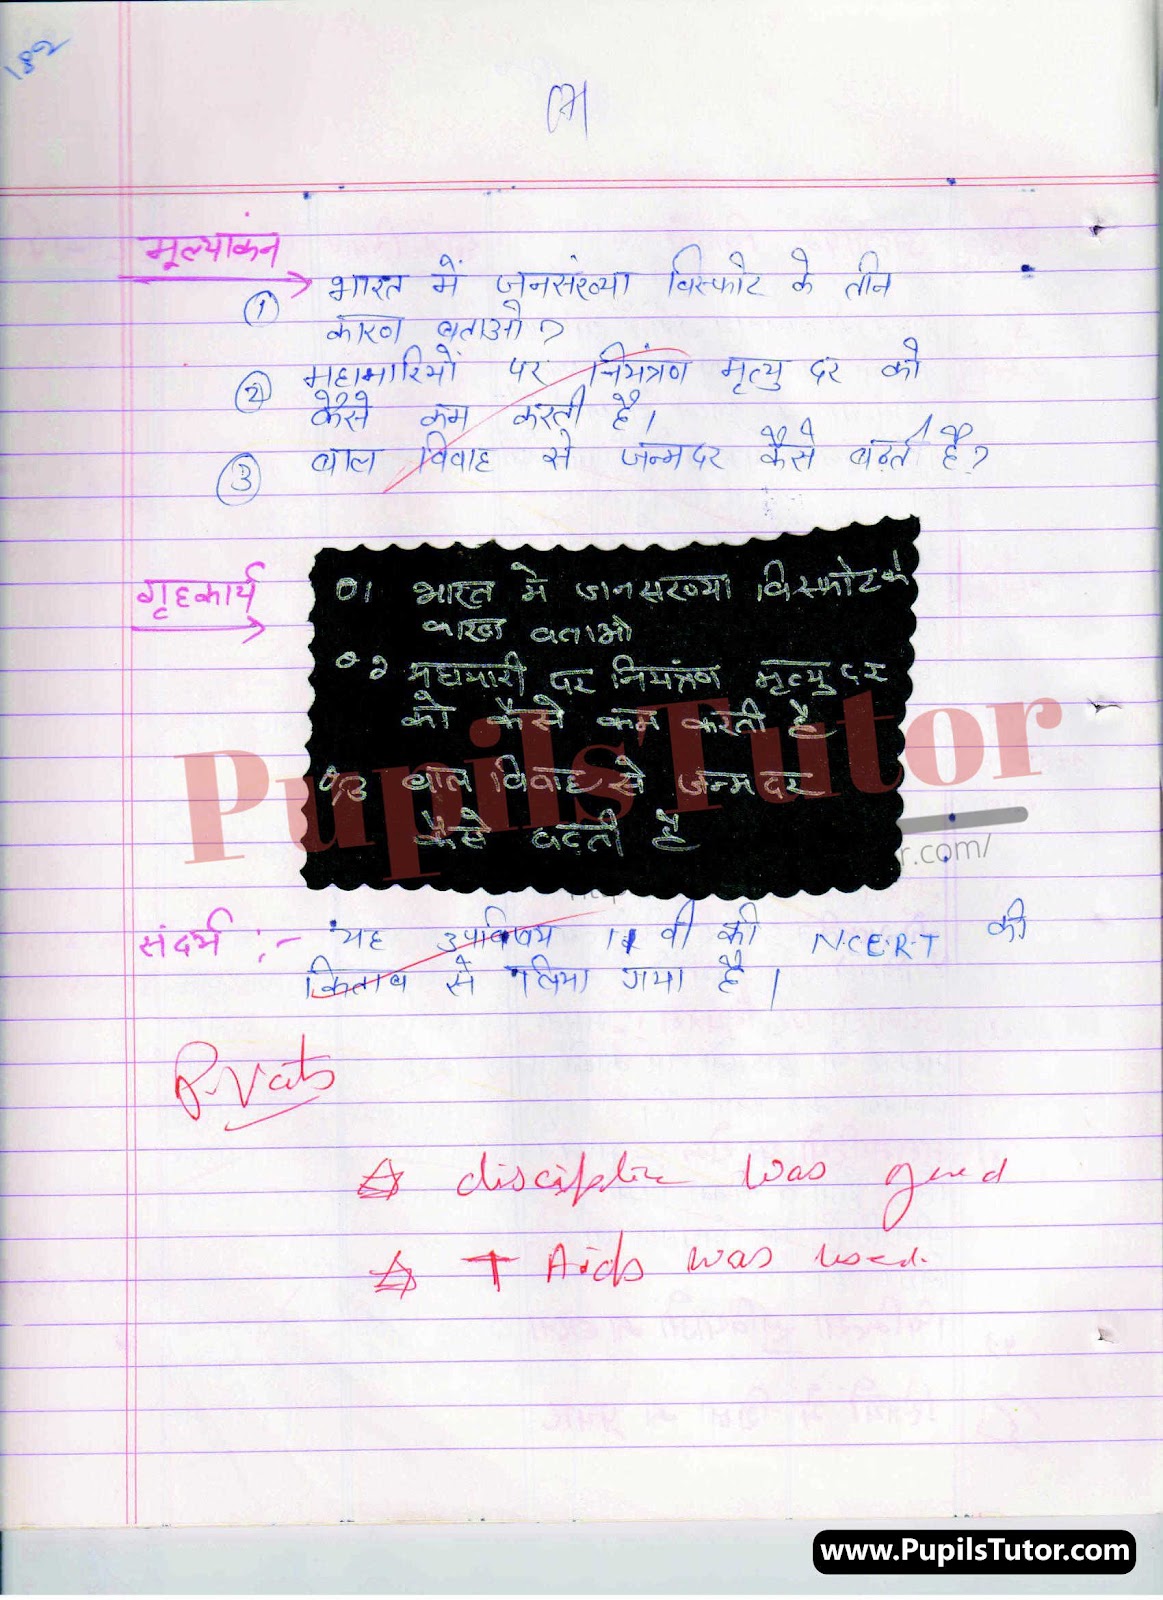 182
मूल्यांकन
① भारत में जनसंख्या विस्फोट के तीन
कारण बताओ?
② महामारियों पर नियंत्रण मृत्यु दर को
कैसे कम करती है।
③ बाल विवाह से जन्मदर कैसे बढ़ती है?
गृहकार्य
Q1 भारत में जनसख्या विस्फोट के
कारण बताओ
Q2 महामारी पर नियंत्रण मृत्यु दर
को कैसे कम करती है
Q3 बाल विवाह से जन्मदर
कैसे बढ़ती है
PupilsTutor
r.com/
संदर्भ :- यह उपविषय 11 वी की N.C.E.R.T की
किताब से लिया गया है।
P. Vats
discipline was good
T Aids was used.
www.PupilsTutor.com